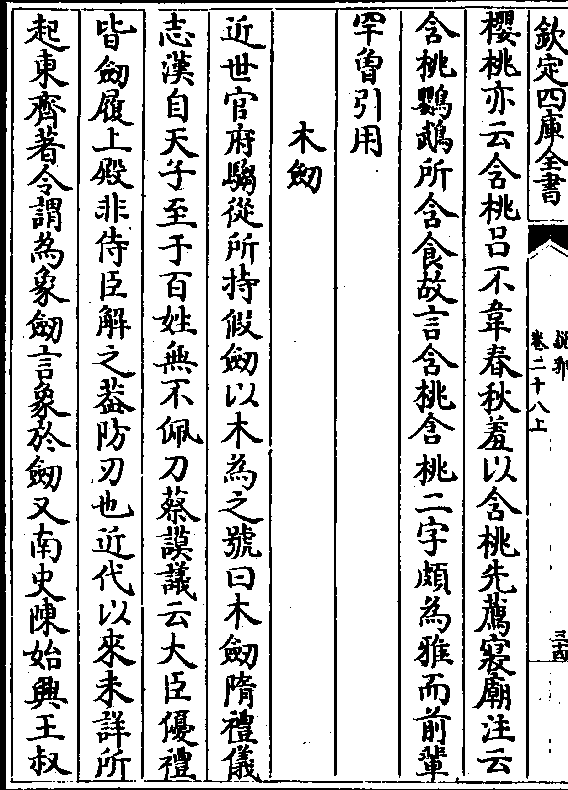 欽定四庫全書
說郛
卷二十八上
三十四
櫻桃亦云含桃呂不韋春秋羞以含桃先薦寢廟注云
含桃鸚鵡所含食故言含桃含桃二字頗為雅而前輩
罕曾引用
木劒
近世官府騶從所持假劒以木為之號曰木劒隋禮儀
志漢自天子至于百姓無不佩刀蔡謨議云大臣優禮
皆劒履上殿非侍臣解之葢防刃也近代以來未詳所
起東齊著令謂為象劒言象於劒又南史陳始興王叔